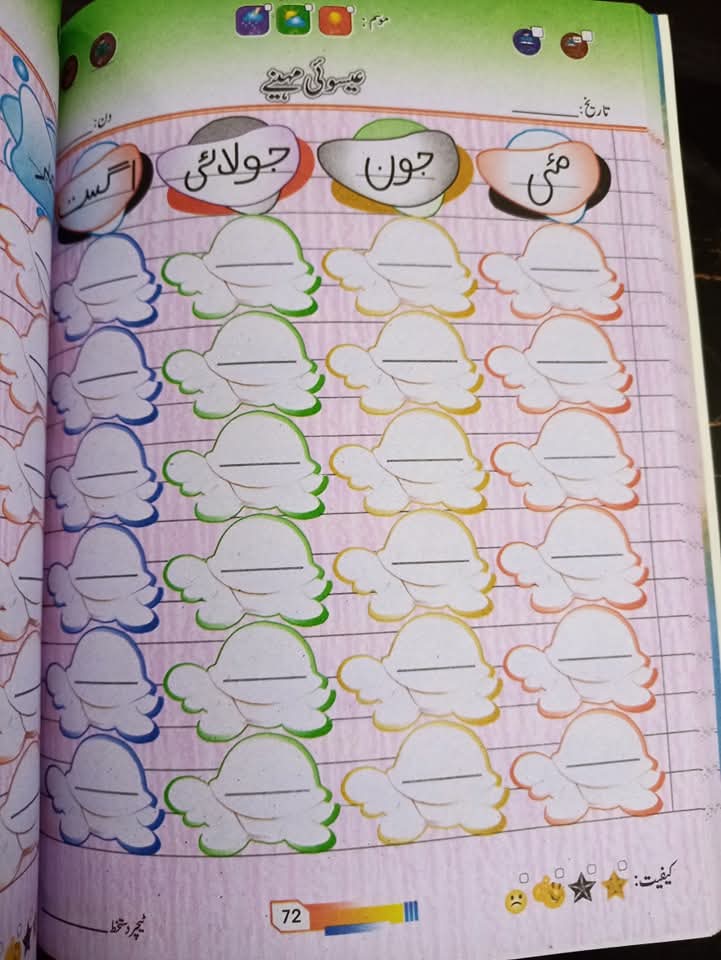 موسم:
عیسوئی مہینے
تاریخ:
دن:
مئی جون جولائی اگست
کیفیت:
ٹیچر دستخط
72